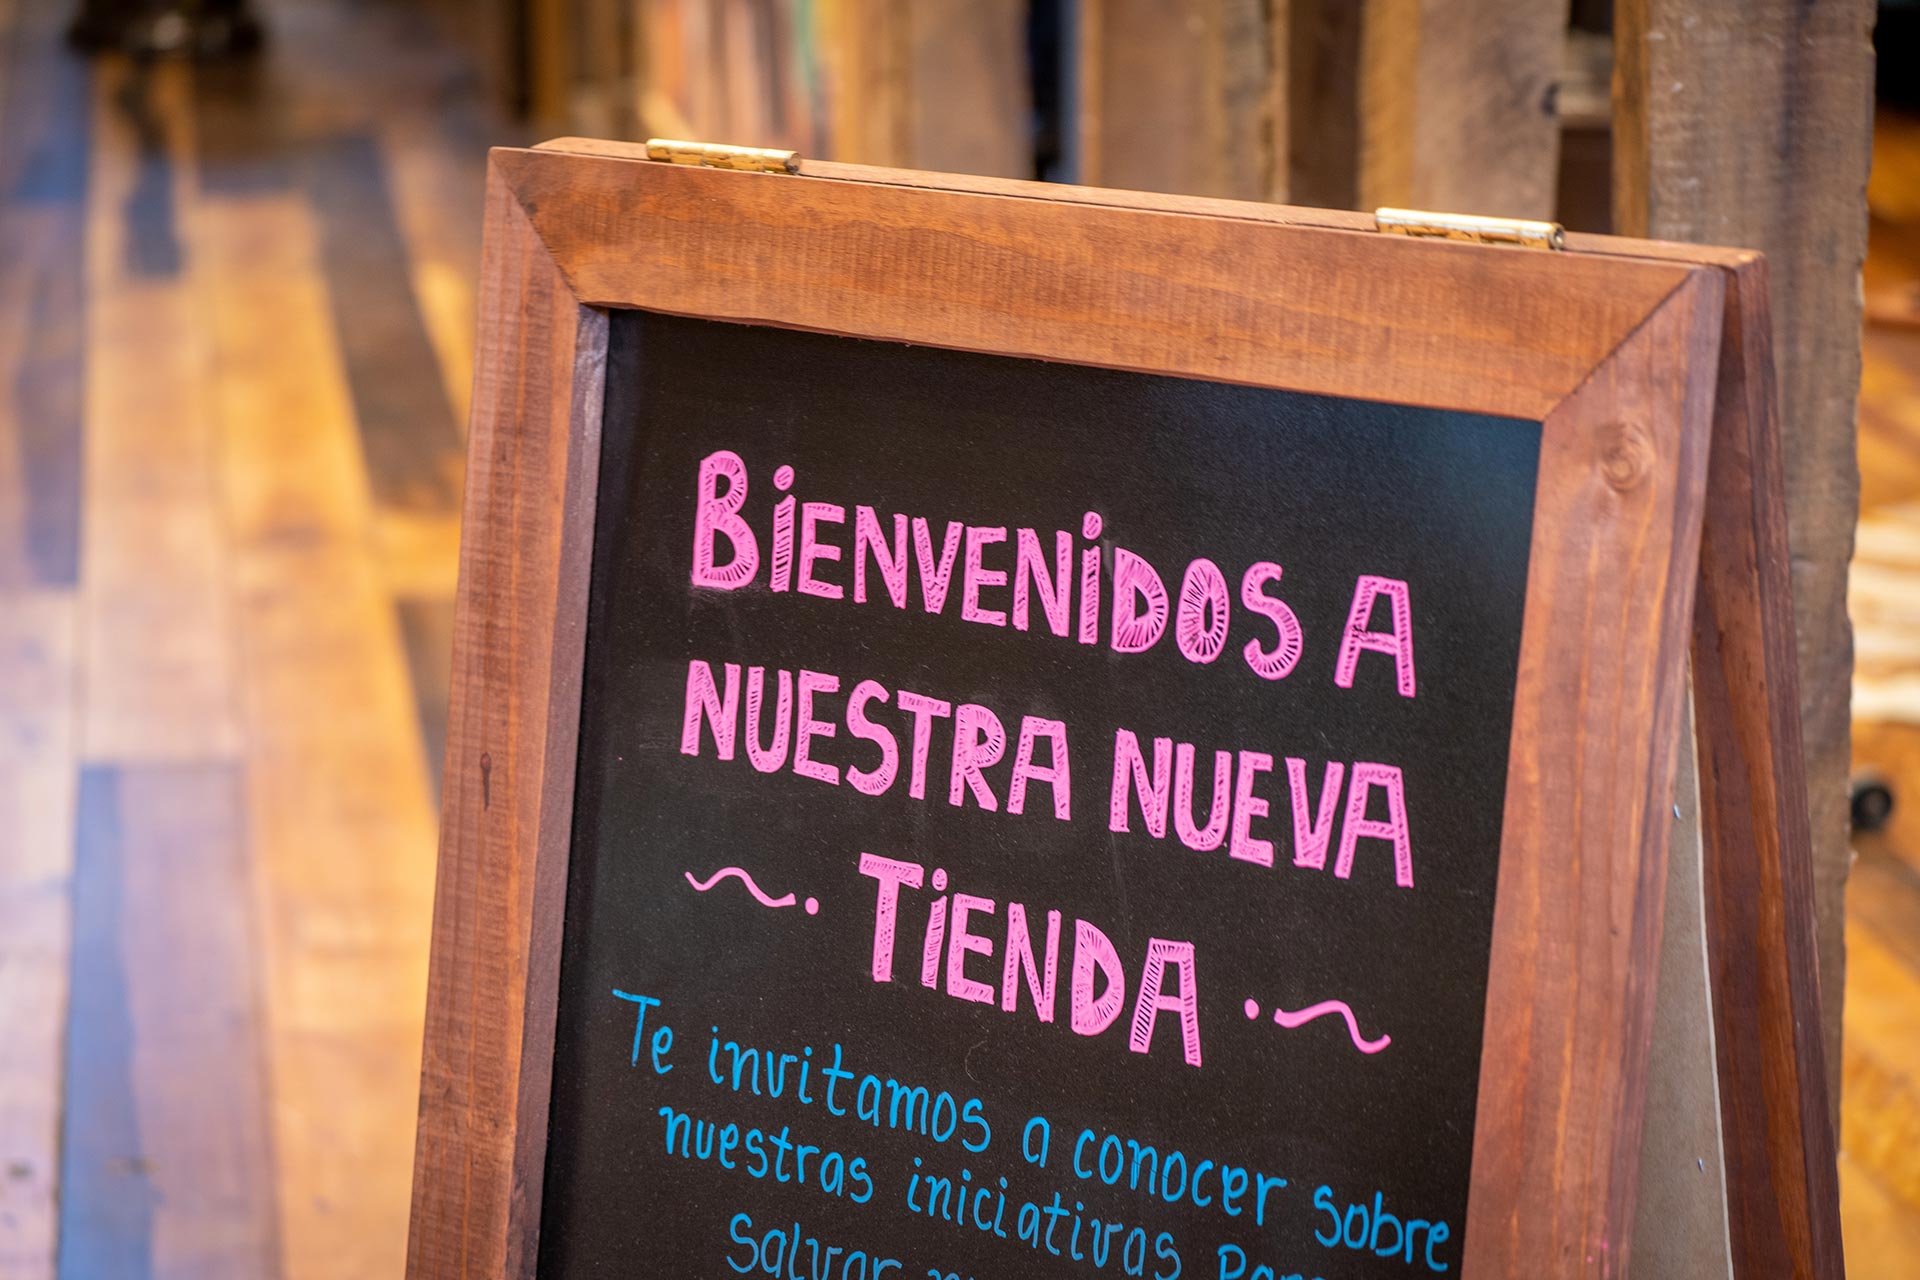 BIENVENIDOS A
NUESTRA NUEVA
~. TIENDA .~
Te invitamos a conocer sobre
nuestras iniciativas
Salvar